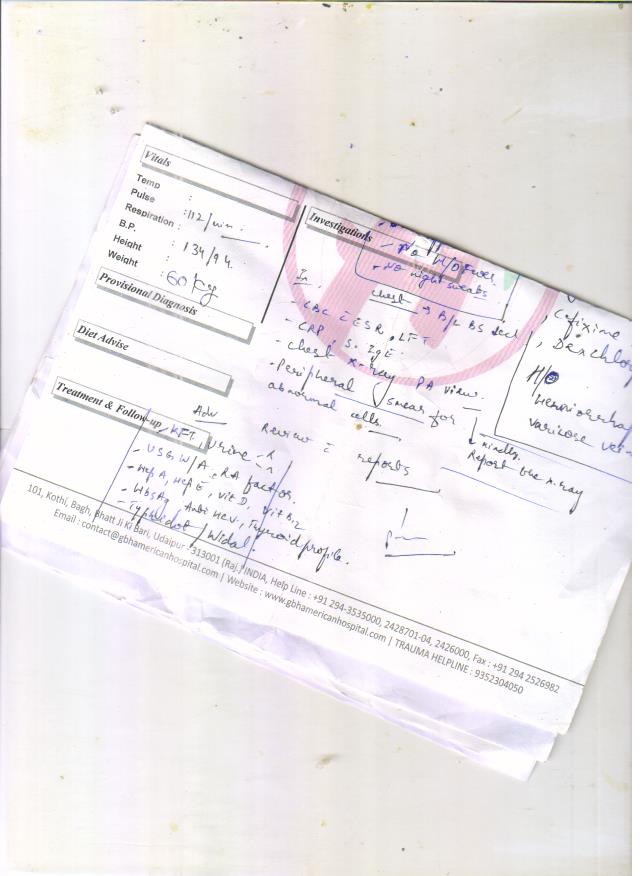 Vitals
Temp :
Pulse : 112/min.
Respiration :
B.P. : 134/94.
Height :
Weight : 60 kg
Provisional Diagnosis
Diet Advise
Treatment & Follow-up
Investigations
- No H/O Fever
- No night sweats
Chest → B/L BS
- CBC c ESR, LFT
- CRP, S. IgE.
- Chest X-ray PA view.
- Peripheral smear for
abnormal cells.
Kindly
Report the X-ray
Review c reports
Adv
- KFT, Urine - R
- USG W/A, RA factor.
- Hep A, Hep E, Vit D, Vit B12
- HBsAg, Anti HCV, Thyroid profile.
- Typhidot / Widal.
Cefixime
, Dexchlo
H/O
Hemorrha
varicose vei
101, Kothi, Bagh, Bhatt Ji Ki Bari, Udaipur - 313001 (Raj.) INDIA, Help Line : +91 294-3535000, 2428701-04, 2426000, Fax : +91 294 2526982
Email : contact@gbhamericanhospital.com | Website : www.gbhamericanhospital.com | TRAUMA HELPLINE : 9352304050